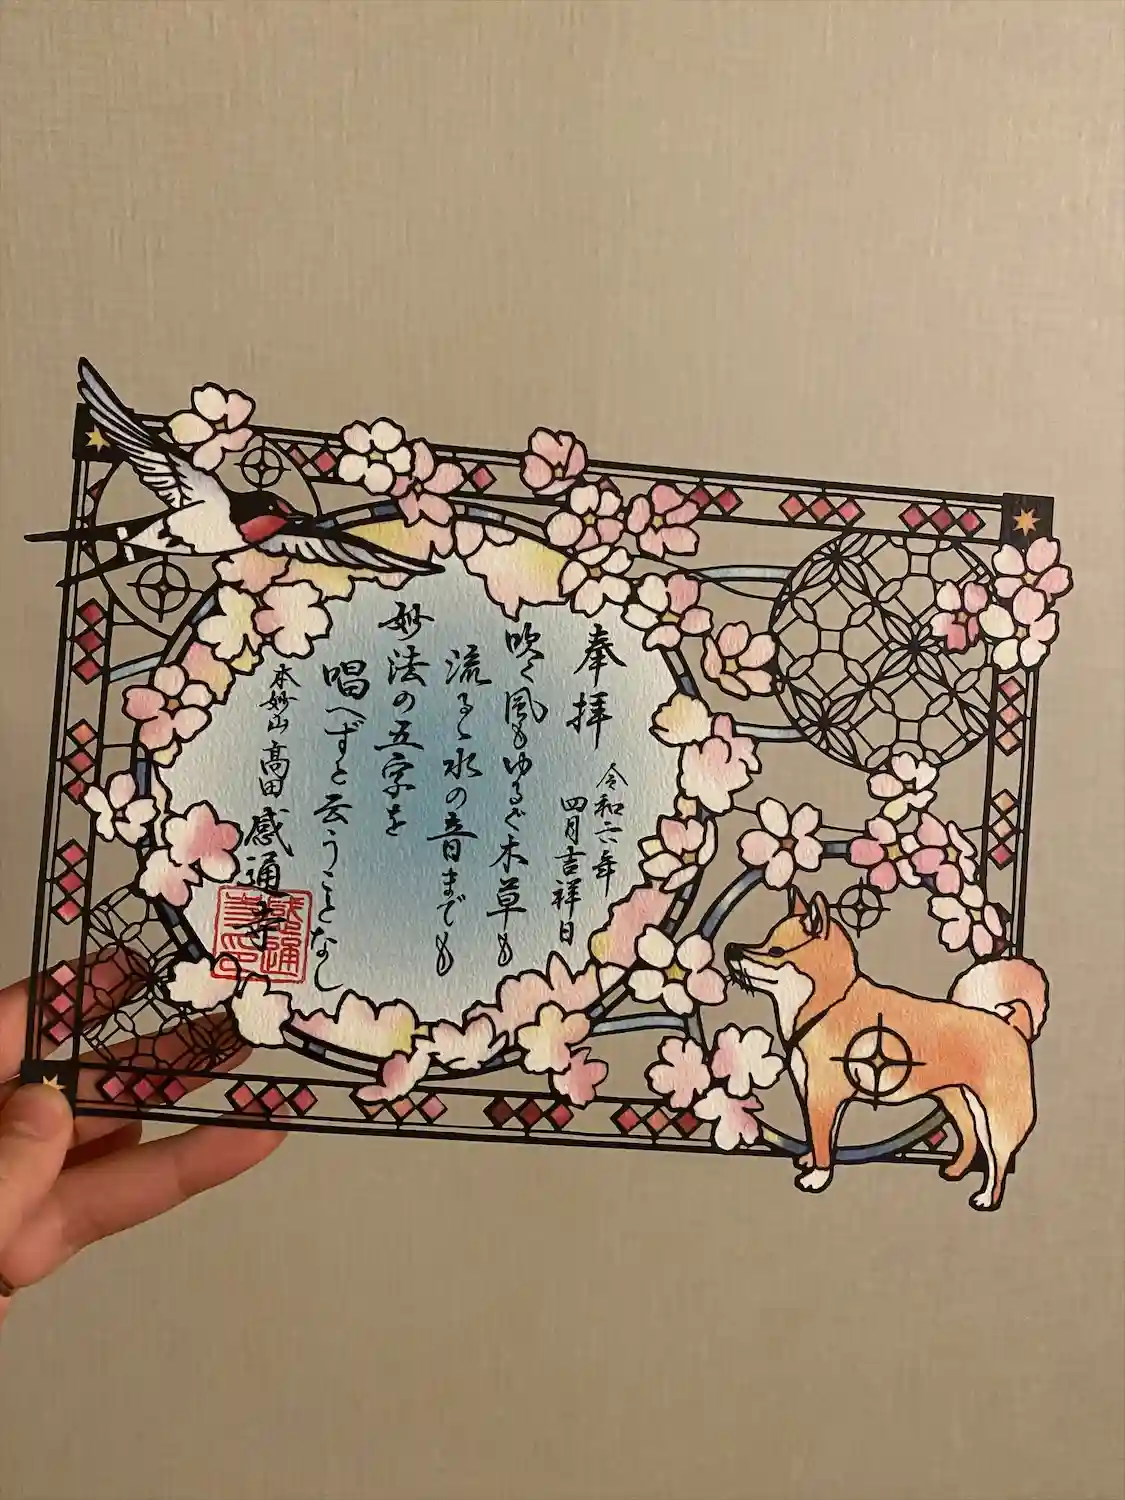 奉拝
令和六年
四月吉祥日
吹く風もゆるぐ木草も
流るゝ水の音までも
妙法の五字を
唱へずと云うことなし
本妙山 高田 感通寺
感通寺印